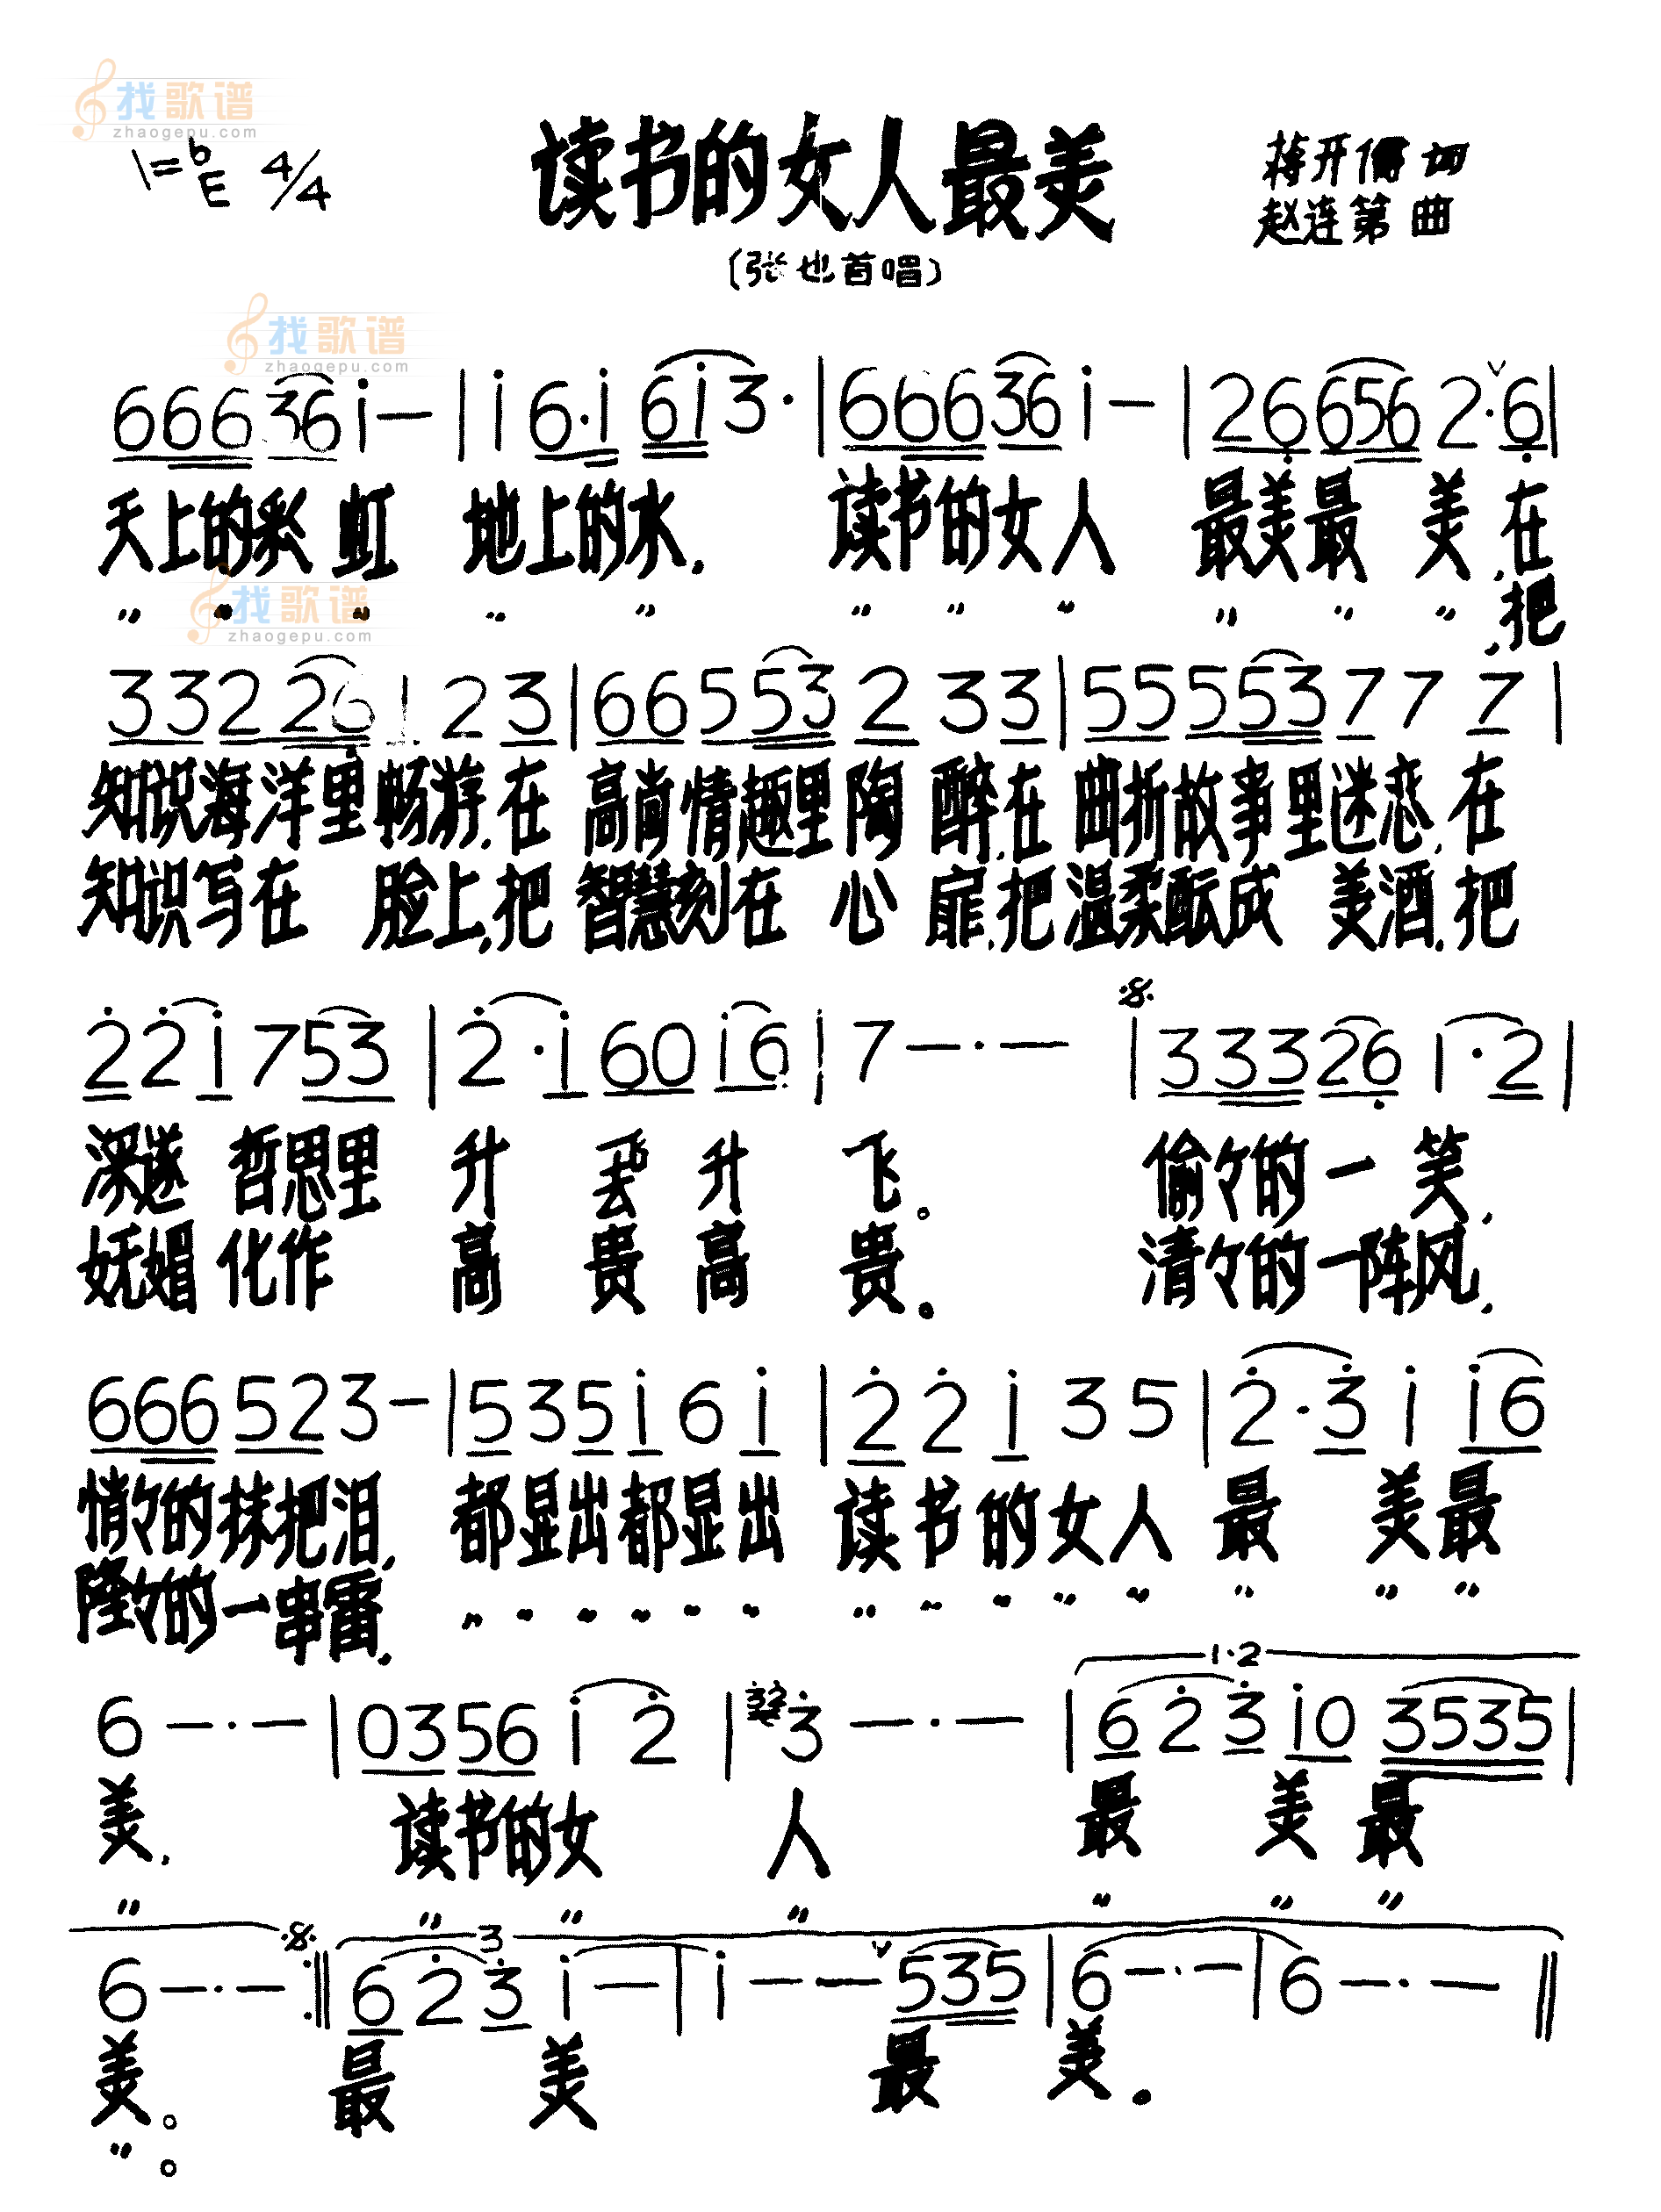 找歌谱
zhaogepu.com
1=bE 4/4
读书的女人最美
蒋开儒 词
赵连第 曲
(张也首唱)
找歌谱
zhaogepu.com
6 6 6 3 6 i — | i 6 · i 6 i 3 · | 6 6 6 3 6 i — | 2 6 6 5 6 2 · 6 |
天上的彩虹 地上的水. 读书的女人 最美最美,在
找歌谱
zhaogepu.com
〃 〃 〃 〃 〃 〃 〃 〃 〃 〃 〃 ,把
3 3 2 2 6 1 2 3 | 6 6 5 5 3 2 3 3 | 5 5 5 5 3 7 7 7 |
知识海洋里畅游,在 高尚情趣里陶醉,在 曲折故事里迷恋,在
知识写在 脸上,把 智慧刻在 心扉,把温柔酝成 美酒,把
2 2 i 7 5 3 | 2 · i 6 0 i 6 | 7 — · — | 3 3 3 2 6 1 · 2 |
深邃 哲思里 升 升 飞。 偷々的一笑,
妩媚 化作 高 贵 高 贵。 清々的一阵风,
6 6 6 5 2 3 — | 5 3 5 i 6 i | 2 2 i 3 5 | 2 · 3 i i 6
悄々的抹把泪, 都显出都显出 读书的女人 最 美最
隆々的一串雷, 〃 〃 〃 〃 〃 〃 〃 〃 〃 〃 〃 〃 〃 〃
1.2
6 — · — | 0 3 5 6 i 2 | 3 — · — | 6 2 3 i 0 3 5 3 5 |
美. 读书的女 人 最 美 最
〃 〃 〃 〃 〃 〃 〃
3
6 — · — :‖ 6 2 3 i — | i — — 5 3 5 | 6 — · — | 6 — · — ‖
美。 最 美 最 美.
〃。